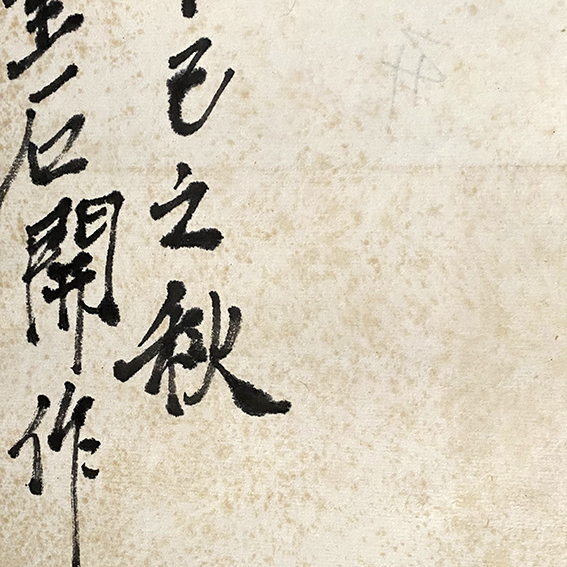 巳之秋
石開作